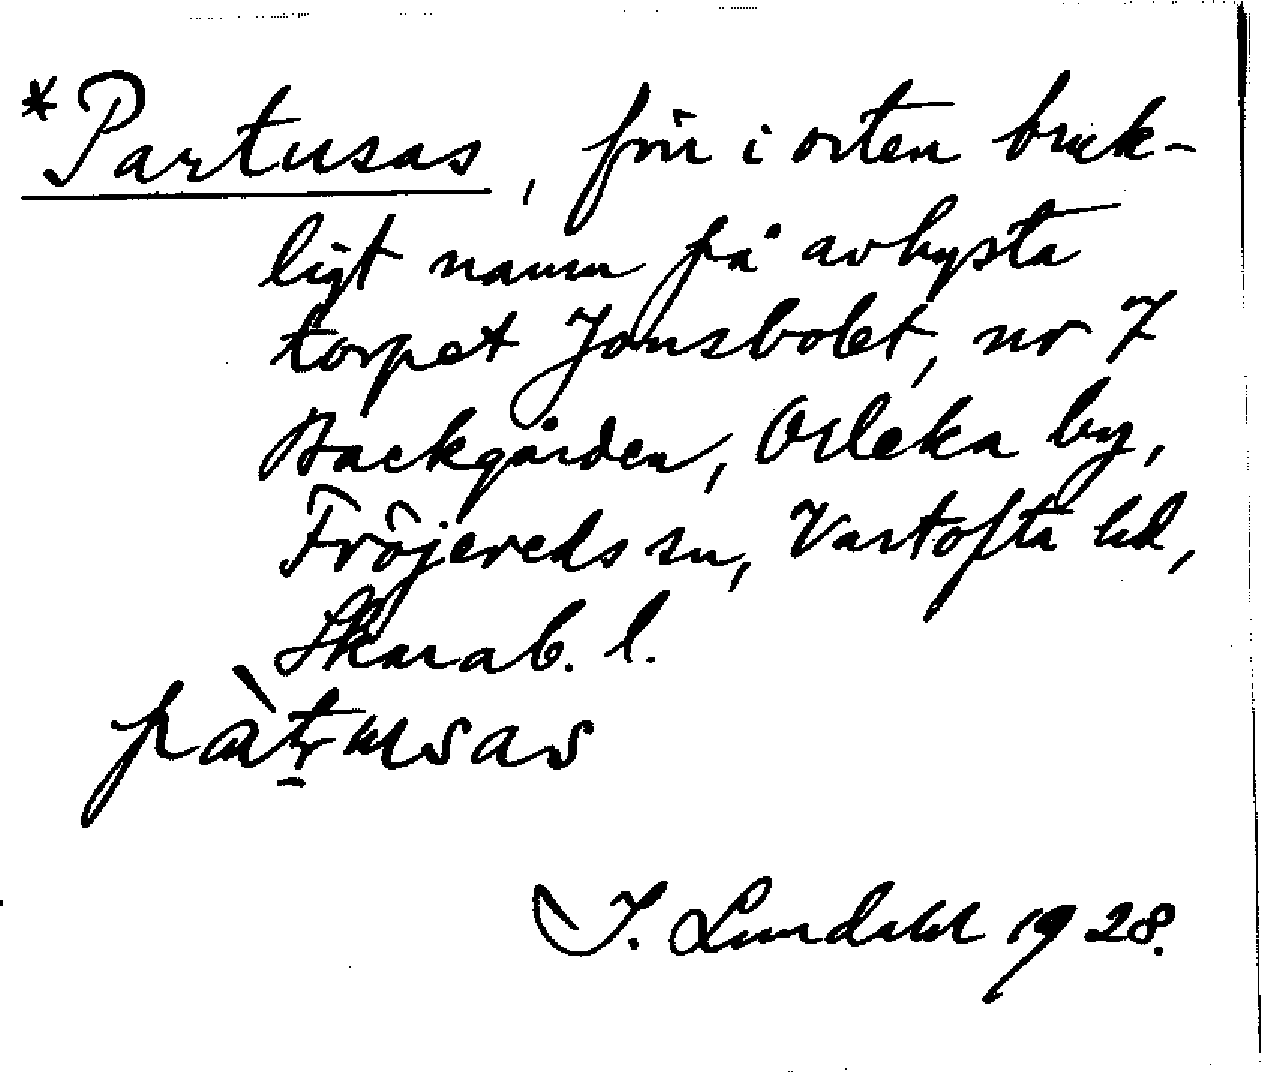 *Partusas, förr i orten bruk-
ligt namn på avhysta
torpet Jonsbolet, nr 7
Backgården, Orleka by,
Fröjereds sn, Vartofta hd,
Skarab. l.
pàtrusas
I. Lundahl 1928.